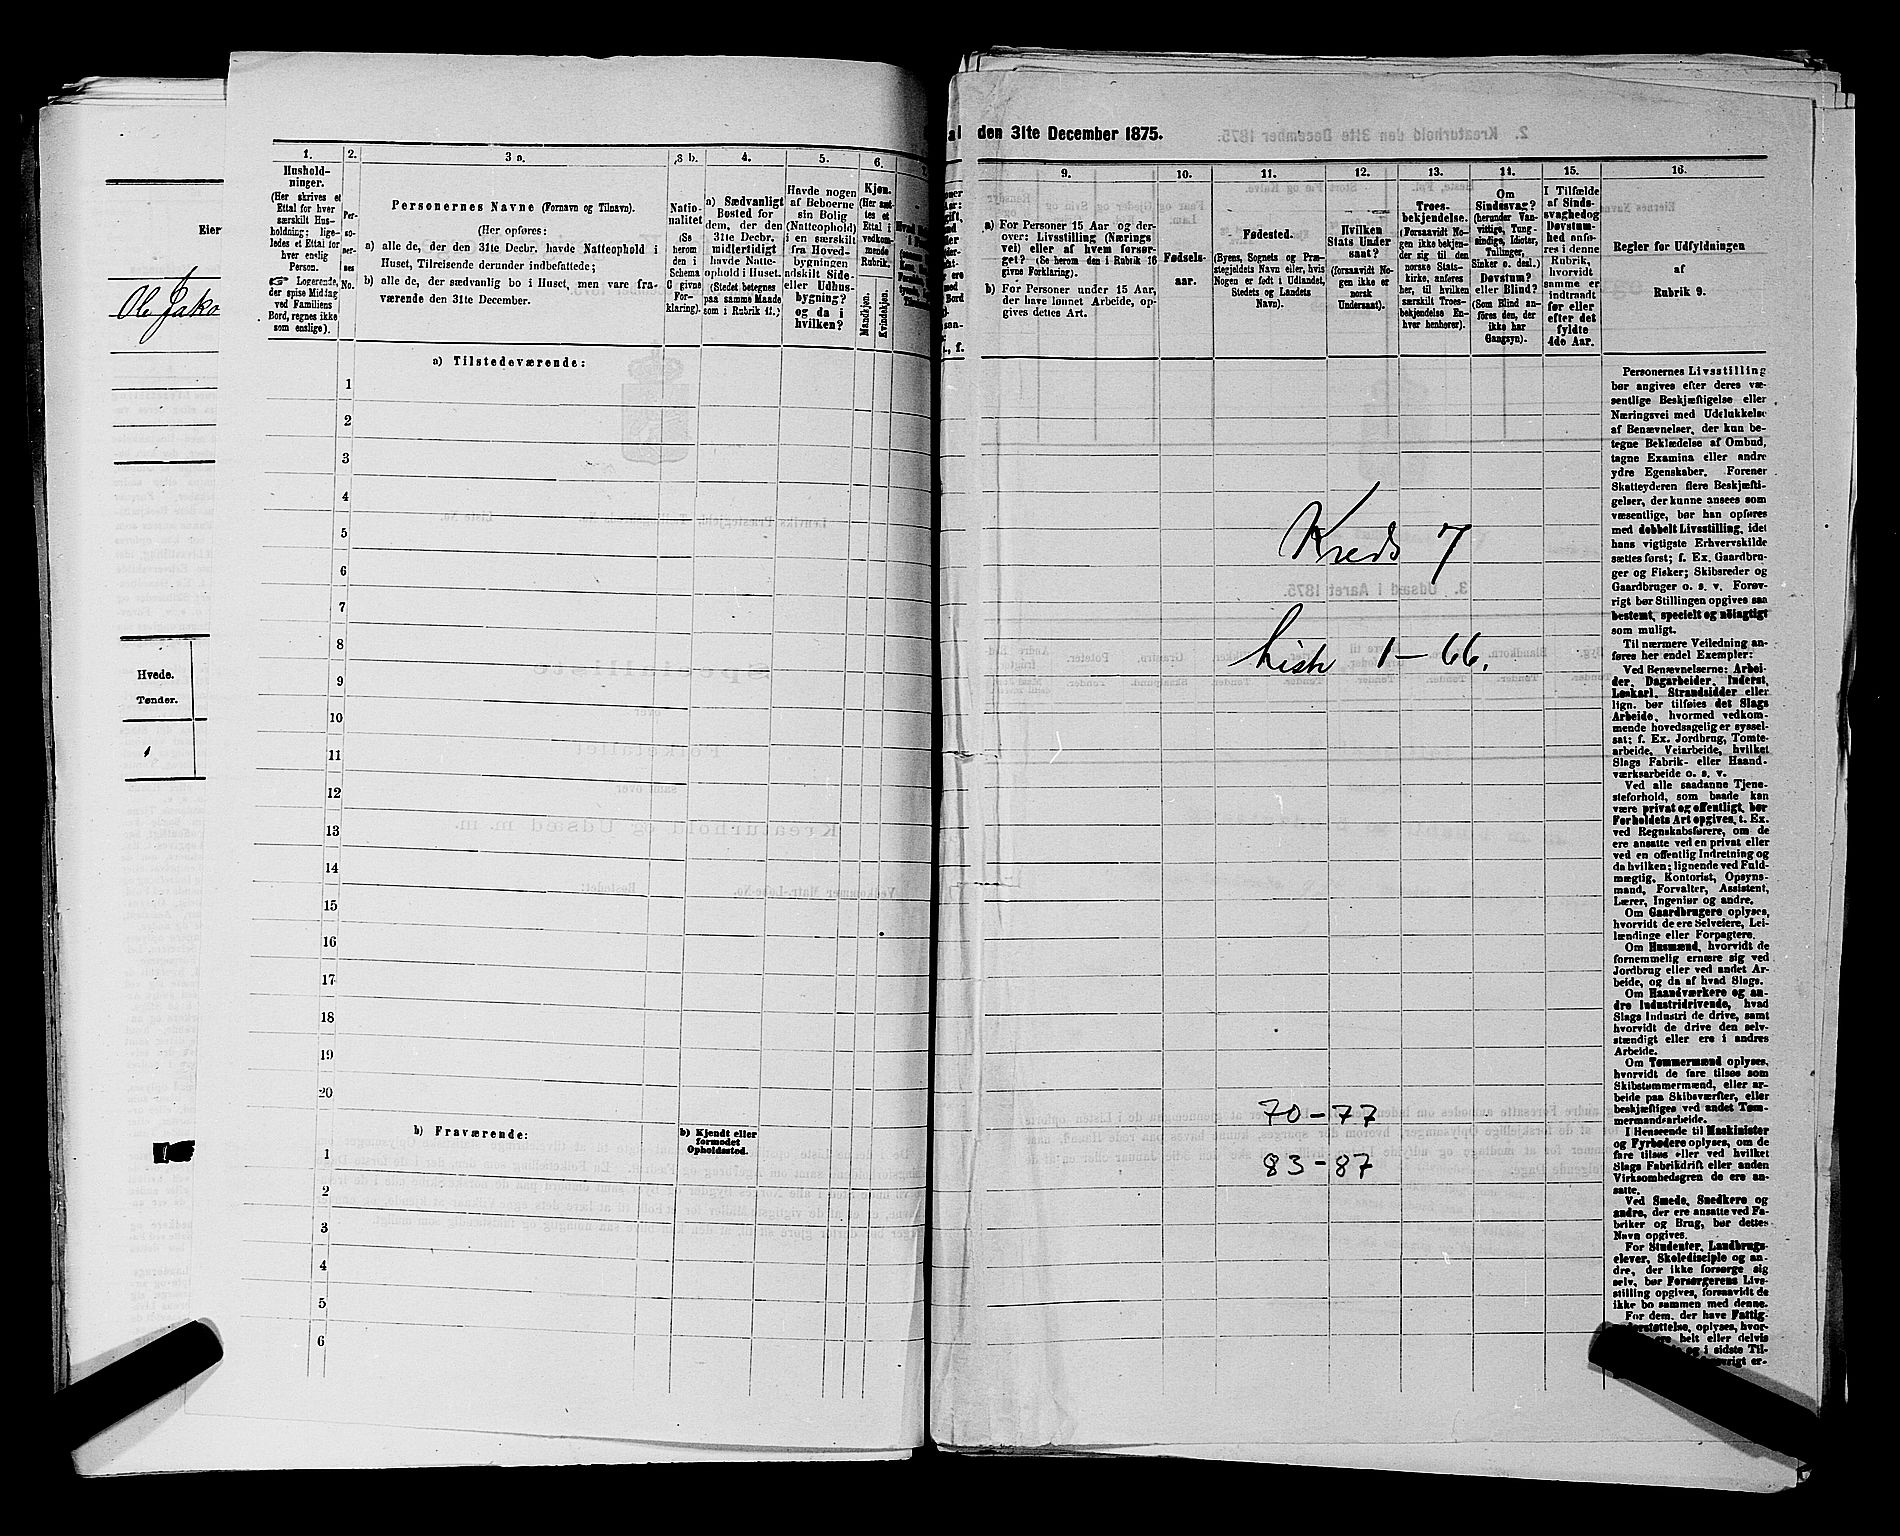 Eier
Ole Jako
Hvede.
Tønder.
1
den 31te December 1875.
1.
Hushold-
ninger.
(Her skrives et
Ettal for hver
særskilt Hus-
holdning; lige-
ledes et Ettal for
hver enslig
Person.
Logerende,
der spise Middag
ved Familiens
Bord, regnes ikke
som enslige).
2.
Per-
so-
ner-
nes
No.
3 a.
Personernes Navne (Fornavn og Tilnavn).
(Her opføres:
a) alle de, der den 31te Decbr. havde Natteophold i
Huset, Tilreisende derunder indbefattede;
b) alle de, der sædvanlig bo i Huset, men vare fra-
værende den 31te December.
3 b.
Natio-
nalitet
(Se
herom
den i
Schema
C givne
For-
klaring).
4.
a) Sædvanligt
Bosted for
dem, der den
31te Decbr.
midlertidigt
havde Natte-
ophold i Huset.
(Stedet betegnes
paa samme Maade
som i Rubrik 11.)
5.
Havde nogen
af Beboerne
sin Bolig
(Natteophold)
i en særskilt
fra Hoved-
bygningen
adskilt Side-
eller Udhus-
bygning?
og da i
hvilken?
6.
Kjøn.
(Her sæt-
tes et
Ettal i
vedkom-
mende
Rubrik.
Mandkjøn.
Kvindekjøn.
a) Tilstedeværende:
1
2
3
4
5
6
7
8
9
10
11
12
13
14
15
16
17
18
19
20
b) Fraværende:
b) Kjendt eller
formodet
Opholdssted.
1
2
3
4
5
6
9.
a) For Personer 15 Aar og der-
over: Livsstilling (Nærings
vei) eller af hvem forsør-
get? (Se herom den i Rubrik 16
givne Forklaring).
b) For Personer under 15 Aar,
der have lønnet Arbeide, op-
gives dettes Art.
10.
Fødsels-
aar.
11.
Fødested.
(Byens, Sognets og Præ-
stegjeldets Navn eller, hvis
Nogen er født i Udlandet,
Stedets og Landets
Navn).
12.
Hvilken
Stats Under
saat?
(forsaavidt No-
gen ikke er
norsk
Undersaat).
13.
Troes-
bekjendelse.
(Forsaavidt No-
gen ikke bekjen-
der sig til den
norske Stats-
kirke, anføres
her, til hvilken
særskilt Troes-
bekjendelse En-
hver henhører).
14.
Om
Sindssvag?
(herunder Van-
vittige, Tung-
sindige, Idioter,
Tullinger,
Sinker o. desl.)
Døvstum?
eller Blind?
(Som Blind an-
føres den, der
ikke har
Gangsyn).
15.
I Tilfælde
af Sinds-
svaghed og
Døvstum-
hed anfø-
res i denne
Rubrik,
hvorvidt
samme er
indtraadt
før eller
efter det
fyldte
4de Aar.
16.
Regler for Udfyldningen
af
Rubrik 9.
Kreds 7
Liste 1–66.
70–77
83–87
Personernes Livsstilling
bør angives efter deres væ-
sentlige Beskjæftigelse eller
Næringsvei med Udelukkelse
af Benævnelser, der kun be-
tegne Beklædelse af Ombud,
tagne Examina eller andre
ydre Egenskaber. Forener
Skatteyderen flere Beskjæfti-
gelser, der kunne ansees som
væsentlige, bør han opføres
med dobbelt Livsstilling, idet
hans vigtigste Erhvervskilde
sættes først; f. Ex. Gaardbru-
ger og Fisker; Skibsreder og
Gaardbruger o. s. v. Forøv-
rigt bør Stillingen opgives saa
bestemt, specielt og nöiagtigt
som muligt.
Til nærmere Veiledning an-
føres her endel Exempler:
Ved Benævnelserne: Arbei-
der, Dagarbeider, Inderst,
Løskarl, Strandsidder eller
lign. bør tilføies det Slags
Arbeide, hvormed vedkom-
mende hovedsagelig er syssel-
sat; f. Ex. Jordbrug, Tomte-
arbeide, Veiarbeide, hvilket
Slags Fabrik- eller Haand-
værksarbeide o. s. v.
Ved alle saadanne Tjene-
steforhold, som baade kan
være privat og offentligt, bør
Forholdets Art opgives, t. Ex.
ved Regnskabsførere, om de
ere ansatte ved en privat eller
ved en offentlig Indretning og
da hvilken; lignende ved Fuld-
mægtig, Kontorist, Opsyns-
mand, Forvalter, Assistent,
Lærer, Ingeniør og andre.
Om Gaardbrugere oplyses,
hvorvidt de ere Selveiere, Lei-
lændinge eller Forpagtere.
Om Husmænd, hvorvidt de
fornemmelig ernære sig ved
Jordbrug eller ved andet Ar-
beide, og da af hvad Slags.
Om Haandværkere og an-
dre Industridrivende, hvad
Slags Industri de drive, samt
hvorvidt de drive den selv-
stændigt eller ere i andres
Arbeide.
Om Tømmermænd oplyses,
hvorvidt de fare tilsøs som
Skibstømmermænd, eller ar-
beide paa Skibsværfter, eller
beskjæftiges ved andet Tøm-
mermandsarbeide.
I Henseende til Maskinister
og Fyrbødere oplyses, om de
fare tilsøs eller ved hvilket
Slags Fabrikdrift eller anden
Virksomhedsgren de ere an-
satte.
Ved Smede, Snedkere og
andre, der ere ansatte ved Fa-
briker og Brug, bør dettes
Navn opgives.
For Studenter, Landbrugs-
elever, Skoledisciple og an-
dre, der ikke forsørge sig
selv, bør Forsørgerens Livs-
stilling opgives, forsaavidt de
ikke bo sammen med denne.
For dem, der have Fattig-
understøttelse, oplyses, hvor-
helt eller delvis
og i sidste Til-